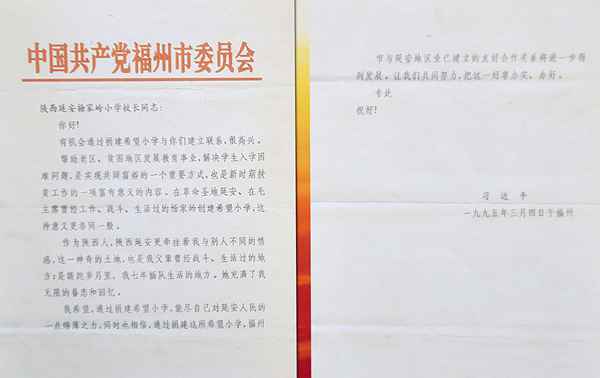 中国共产党福州市委员会
陕西延安杨家岭小学校长同志:
你好!
有机会通过捐建希望小学与你们建立联系,很高兴。
帮助老区、贫困地区发展教育事业,解决学生入学困
难问题,是实现共同富裕的一个重要方式,也是新时期扶
贫工作的一项富有意义的内容。在革命圣地延安、在毛
主席曾经工作、战斗、生活过的杨家岭创建希望小学,这
种意义更非同一般。
作为陕西人,陕西延安更牵挂着我与别人不同的情
感,这一神奇的土地,也是我父辈曾经战斗、生活过的地
方;是蹉跎岁月里,我七年插队生活的地方。她充满了我
无限的眷恋和回忆。
我希望,通过捐建希望小学,能尽自己对延安人民的
一些绵薄之力,同时也相信,通过捐建这所希望小学,福州
市与延安地区业已建立的友好合作关系将进一步得
到发展。让我们共同努力,把这一好事办实、办好。
专此
祝好!
习近平
一九九五年三月四日于福州